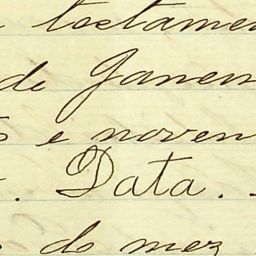 testamen
de Janei
s e noven
. Data. .
do mez